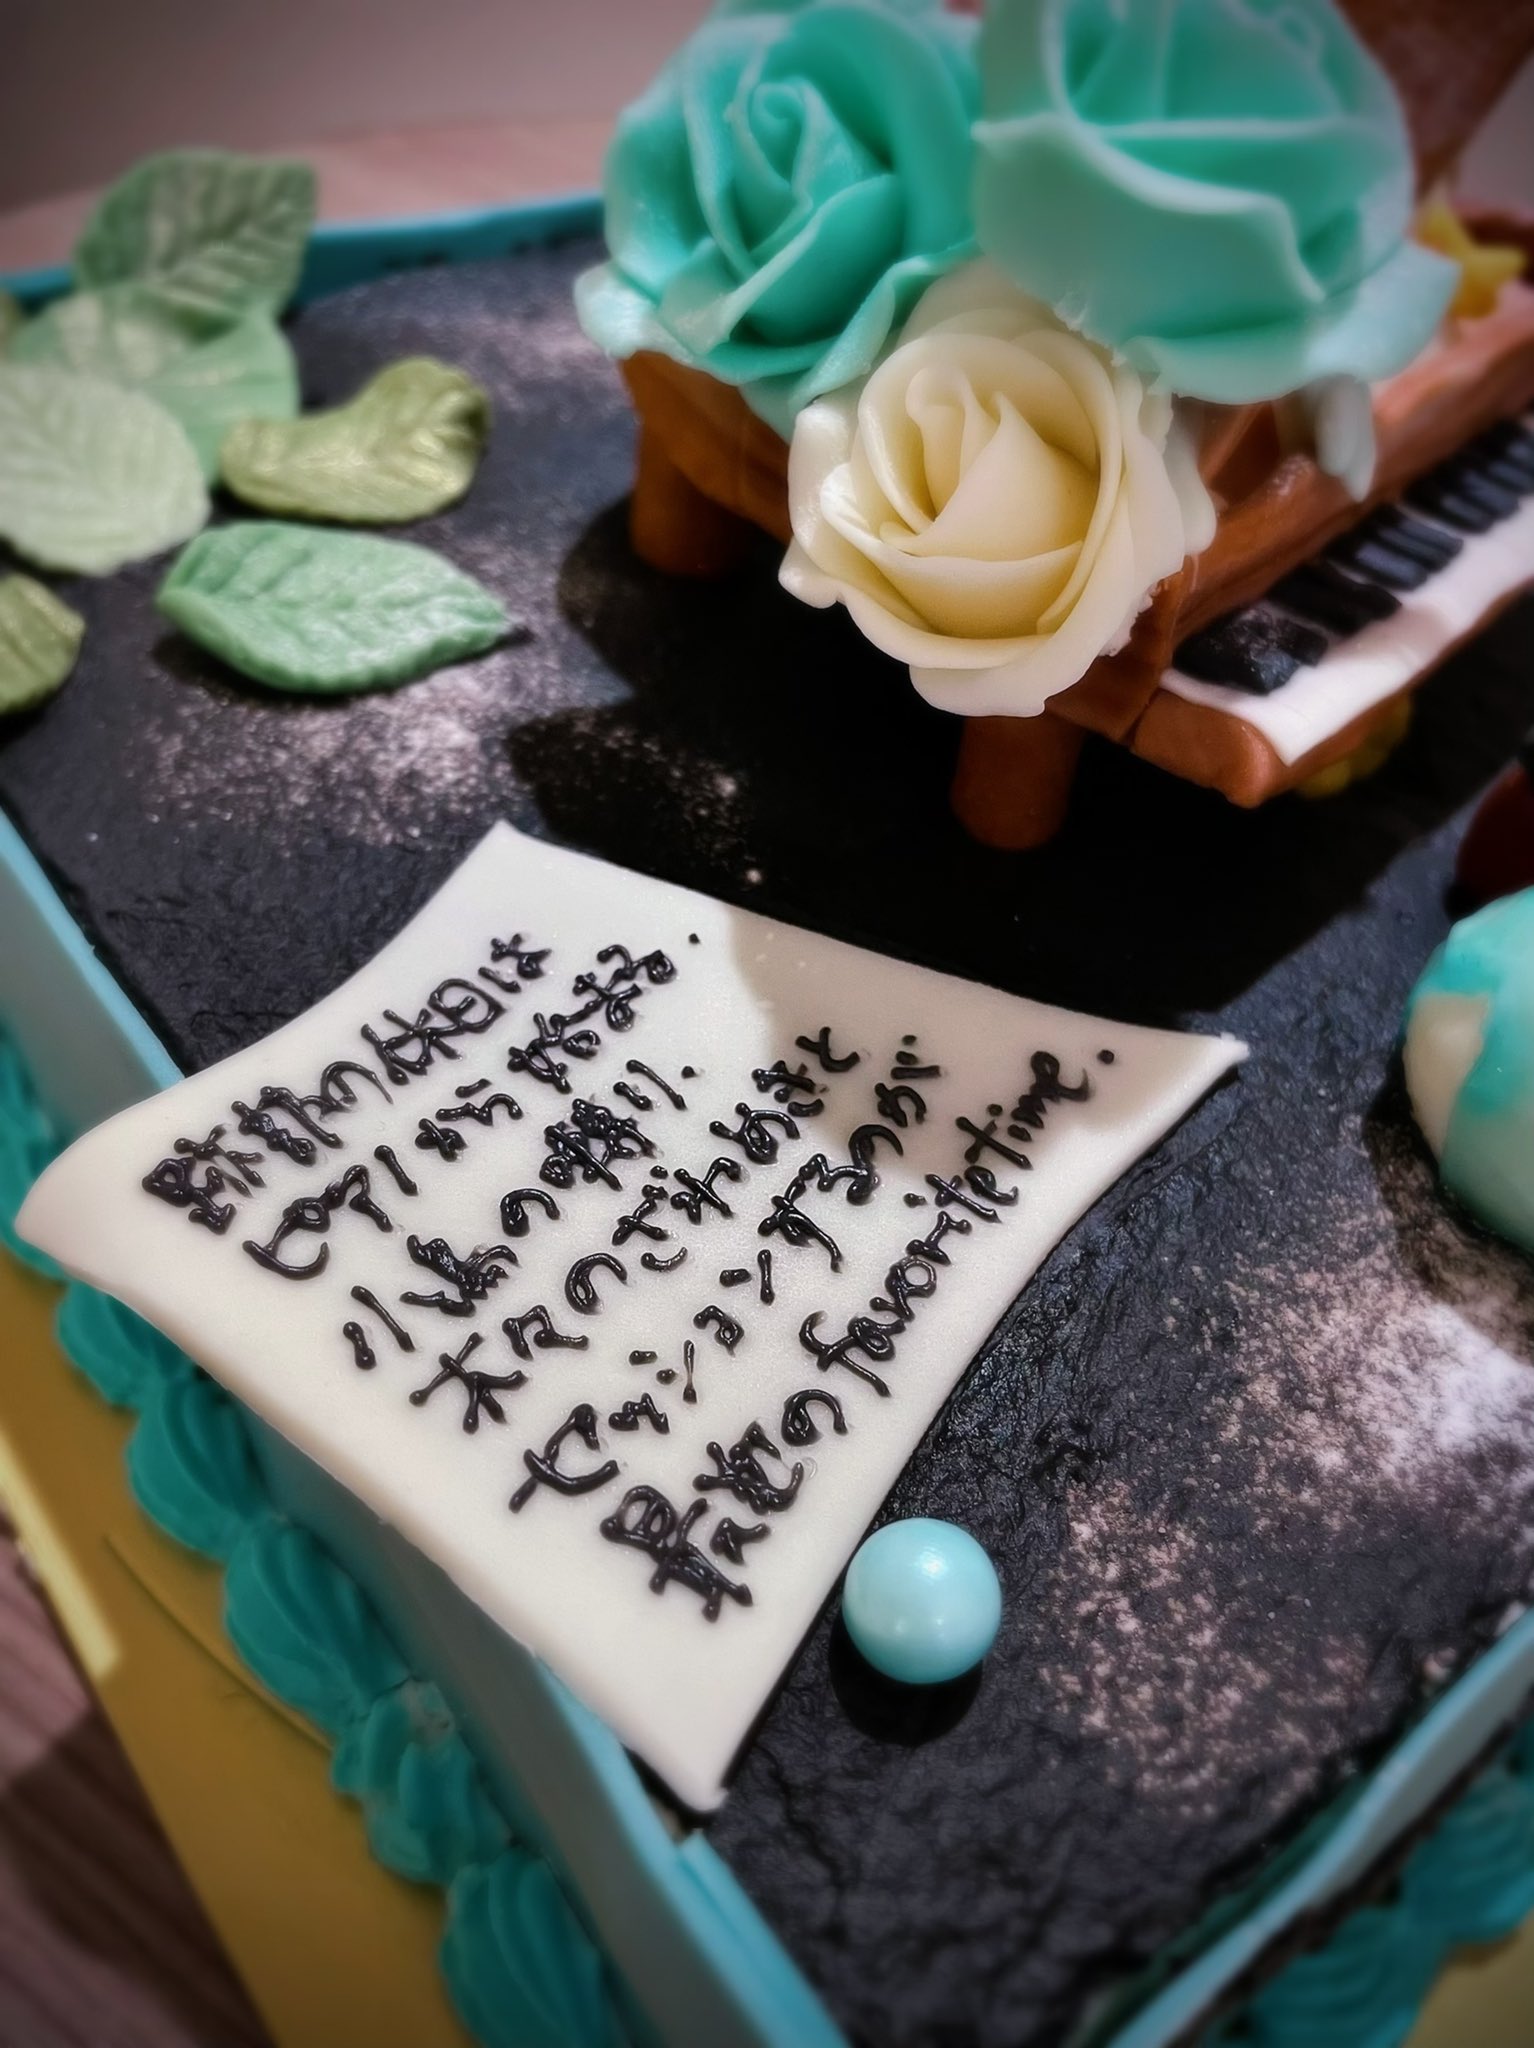 躍動の休日は
ピアノから始まる.
小鳥の囀り.
木々のざわめきと
セッションするのが
最高のfavorite time.